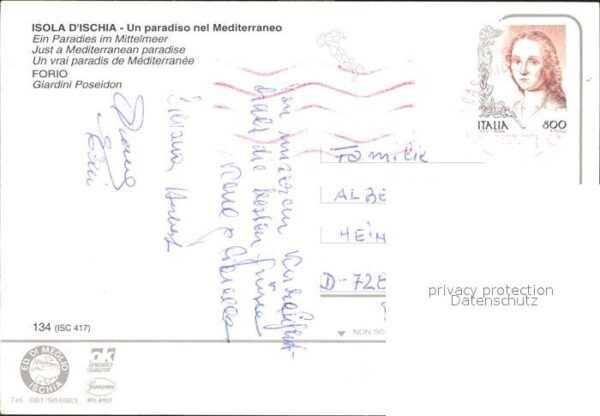 ISOLA D'ISCHIA - Un paradiso nel Mediterraneo
Ein Paradies im Mittelmeer
Just a Mediterranean paradise
Un vrai paradis de Méditerranée
FORIO
Giardini Poseidon
ITALIA 800
Von unserem Kuraufent-
halt die besten Grüsse
Familie
ALBE
HEIN
D-728
privacy protection
Datenschutz
134 (ISC 417)
NON SC
ED. DI MEGLIO
ISCHIA
OK
Garami
MILANO
Tel. 081/984663